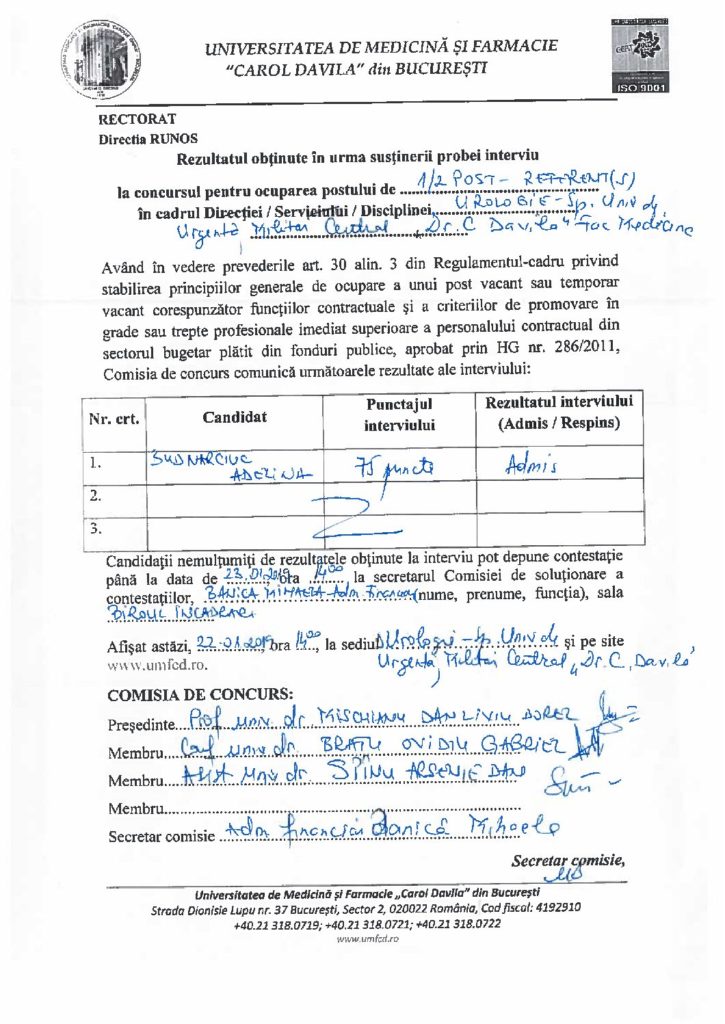 UNIVERSITATEA DE MEDICINĂ ȘI FARMACIE
“CAROL DAVILA” din BUCUREȘTI
CERT
ISO 9001
RECTORAT
Directia RUNOS
Rezultatul obținute în urma susținerii probei interviu
la concursul pentru ocuparea postului de 1/2 POST - REFERENT(S)
în cadrul Direcției / Serviciului / Disciplinei, UROLOGIE - Sp. Univ de
Urgență Militar Central „Dr. C Davila” Fac Medicina
Având în vedere prevederile art. 30 alin. 3 din Regulamentul-cadru privind
stabilirea principiilor generale de ocupare a unui post vacant sau temporar
vacant corespunzător funcțiilor contractuale și a criteriilor de promovare în
grade sau trepte profesionale imediat superioare a personalului contractual din
sectorul bugetar plătit din fonduri publice, aprobat prin HG nr. 286/2011,
Comisia de concurs comunică următoarele rezultate ale interviului:
Nr. crt. Candidat Punctajul interviului Rezultatul interviului (Admis / Respins)
1. ADELINA 75 puncte Admis
2.
3.
Candidații nemulțumiți de rezultatele obținute la interviu pot depune contestație
până la data de 23.01.2019, ora 1400, la secretarul Comisiei de soluționare a
contestațiilor, BANICA MIHAELA - Adm. Financiar (nume, prenume, funcția), sala
BIROUL INCADRARI
Afișat astăzi, 22-01-2019, ora 1400, la sediul Urologie - Sp. Univ de și pe site
Urgență Militar Central „Dr. C. Davila”
www.umfcd.ro.
COMISIA DE CONCURS:
Președinte Prof univ. dr. MISCHIANU DAN LIVIU DOREL
Membru Conf univ. dr. BRATU OVIDIU GABRIEL
Membru Asist univ dr. SPINU ARSENIE DAN
Membru
Secretar comisie Adm financiar Banică Mihaela
Secretar comisie,
Universitatea de Medicină și Farmacie „Carol Davila” din București
Strada Dionisie Lupu nr. 37 București, Sector 2, 020022 România, Cod fiscal: 4192910
+40.21 318.0719; +40.21 318.0721; +40.21 318.0722
www.umfcd.ro